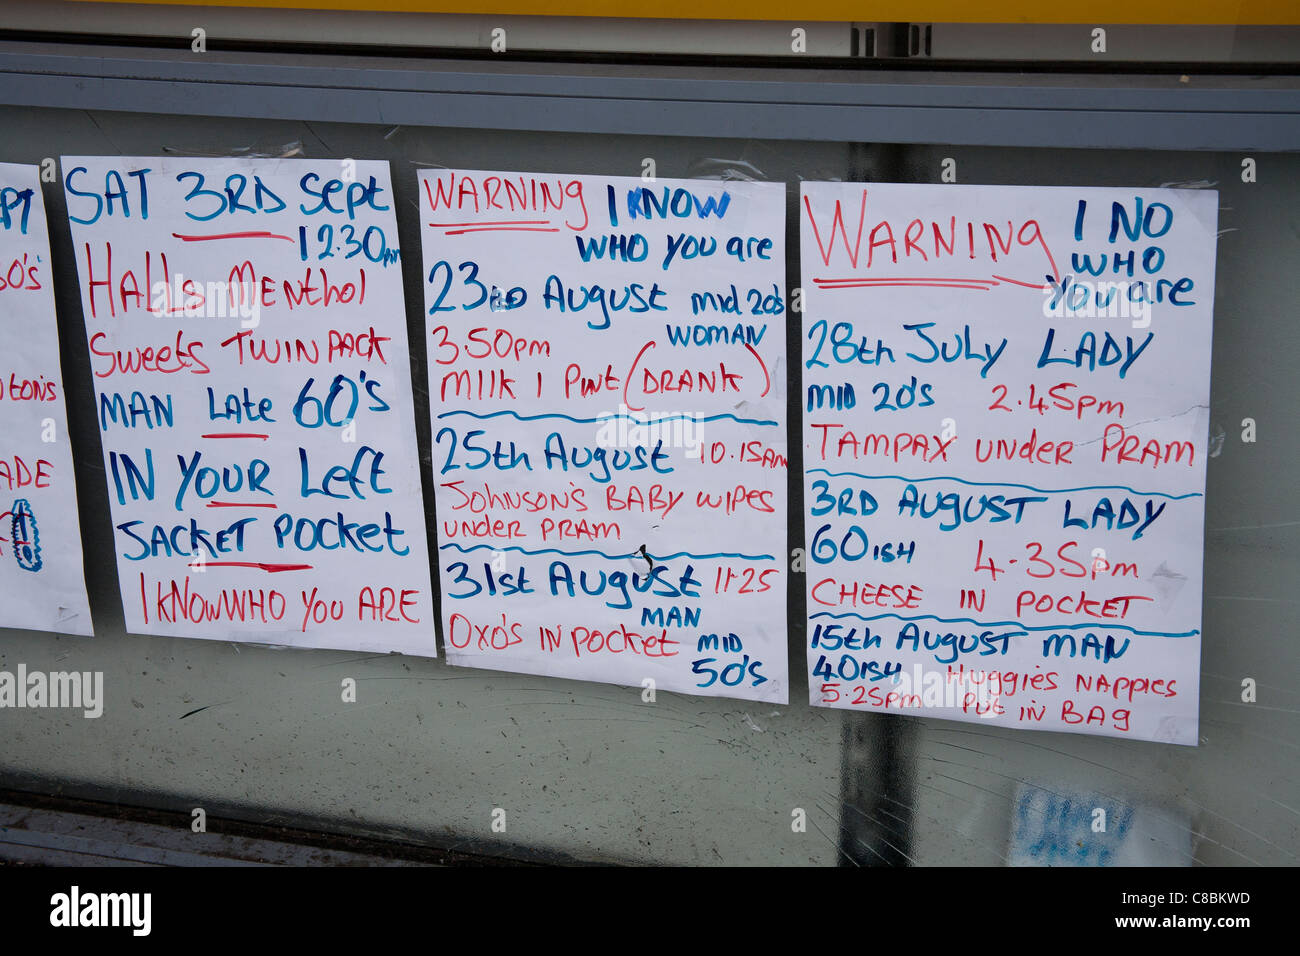 SAT 3RD Sept
12.30pm
Halls Menthol
Sweets TWIN PACK
MAN Late 60's
IN YOUR Left
JACKET POCKET
I KNOW WHO YOU ARE
WARNING I KNOW
WHO YOU are
23RD August MID 20's
WOMAN
3.50pm
Milk 1 Pint (DRANK)
25th August 10.15Am
JOHNSON'S BABY WIPES
UNDER PRAM
31st August 11.25
MAN
OXO's IN POCKET MID
50's
WARNING I NO
WHO
YOU are
28th July LADY
MID 20's 2.45pm
TAMPAX UNDER PRAM
3RD August LADY
60ISH 4.35pm
CHEESE IN POCKET
15th August MAN
40ISH Huggies NAPPIES
5.25pm Put in BAg
30's
TON'S
ADE
alamy
Image ID: C8BKWD
www.alamy.com